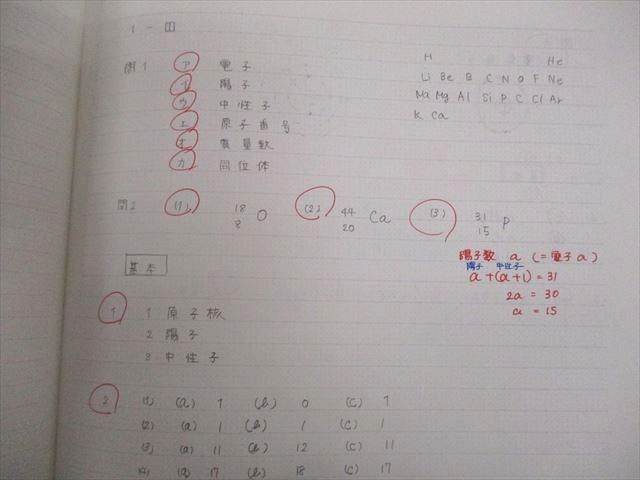 1 - 回
問1 ア 電子
イ 陽子
ウ 中性子
エ 原子番号
オ 質量数
カ 同位体
H He
Li Be B C N O F Ne
Na Mg Al Si P C Cl Ar
K Ca
問2 (1) 18 8 O (2) 44 20 Ca (3) 31 15 P
陽子数 a (=電子a)
陽子 中性子
a+(a+1)=31
2a = 30
a = 15
基本
1 1 原子核
2 陽子
3 中性子
2 (1) (a) 7 (b) 0 (c) 7
(2) (a) 1 (b) 1 (c) 1
(3) (a) 11 (b) 12 (c) 11
(4) (a) 17 (b) 18 (c) 17